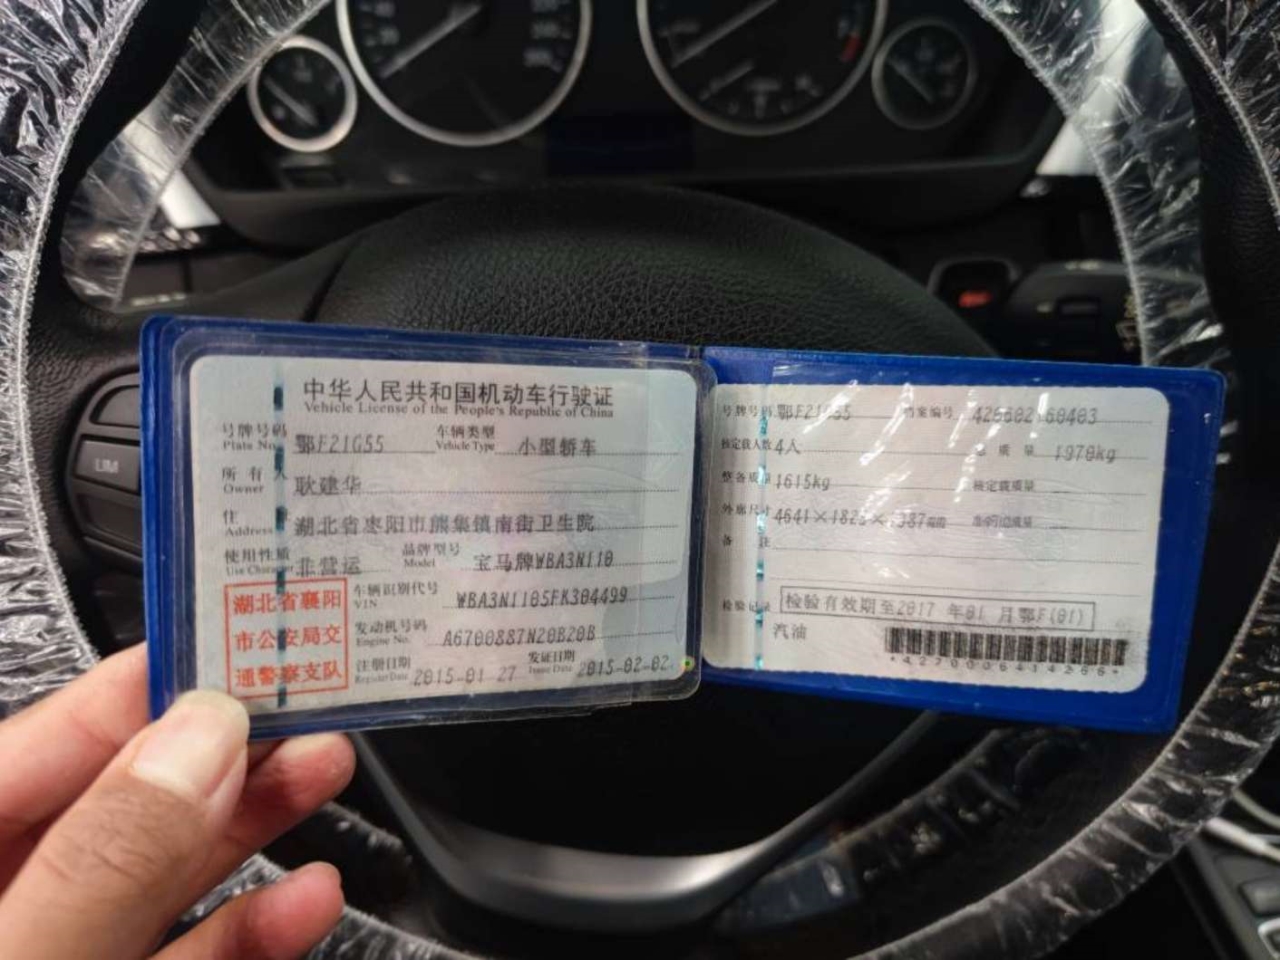 中华人民共和国机动车行驶证
Vehicle License of the People's Republic of China
号牌号码 鄂F21G55 车辆类型 小型轿车
Plate No. Vehicle Type
所有人 耿建华
Owner
住 湖北省枣阳市熊集镇南街卫生院
Address
使用性质 非营运 品牌型号 宝马牌WBA3N110
Use Character Model
湖北省襄阳
市公安局交
通警察支队
车辆识别代号 WBA3N1105FK304499
VIN
发动机号码 A6700887N20B20B
Engine No.
注册日期 2015-01-27 发证日期 2015-02-02
Register Date Issue Date
号牌号码 鄂F21G55 档案编号
核定载人数 4人 总质量 1970kg
整备质量 1615kg 核定载质量
外廓尺寸
备 注
检验记录 检验有效期至2017 年01 月鄂F(01)
汽油